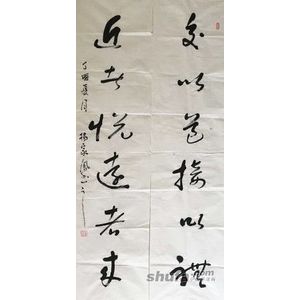 交以道接以礼
近者悦远者来
丁酉夏月杨家凤书